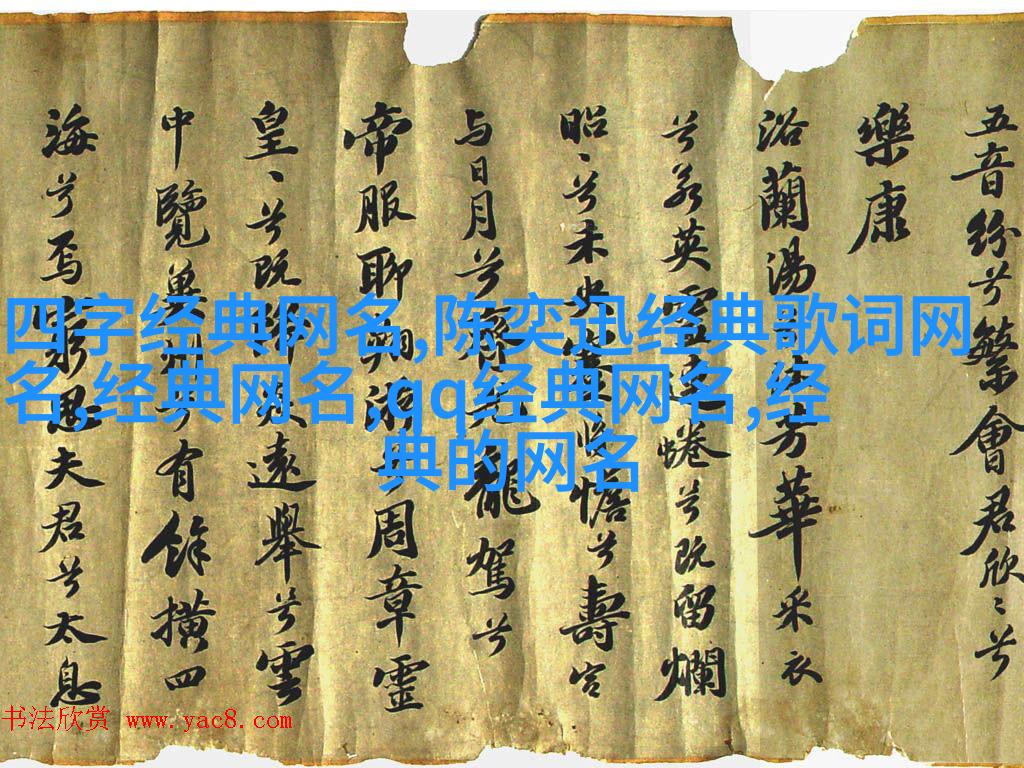 五音紛兮繁會君欣〻兮
樂康
浴蘭湯芳華采衣
兮若英靈連蜷兮既留爛
昭〻兮未央蹇將憺兮壽宮
与日月兮齊光龍駕兮
帝服聊翱游兮周章靈
皇〻兮既降遠舉兮雲
中覽冀州兮有餘橫四
海兮焉窮思夫君兮太息
四字经典网名,陈奕迅经典歌词网
名,经典网名,qq经典网名,经
典的网名
书法欣赏 www.yac8.com